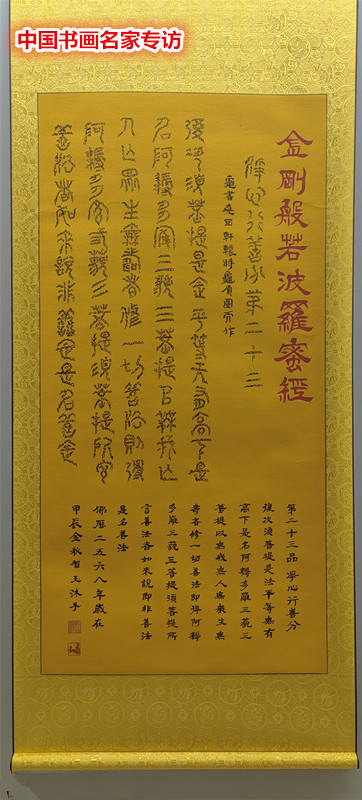 中国书画名家专访
金剛般若波羅蜜經
淨心行善分第二十三
龜書是因軒轅時龜負圖而作
復次須菩提是法平等无有高下是
名阿耨多羅三藐三菩提
人 眾生無壽者修一切善法則得
阿耨多羅三藐三菩提須菩提所言
善法者如來說非善法是名善法
第二十三品 淨心行善分
復次須菩提是法平等無有
高下是名阿耨多羅三藐三
菩提以無我無人無衆生無
壽者修一切善法即得阿耨
多羅三藐三菩提須菩提所
言善法者如來說即非善法
是名善法
佛曆二五六八年歲在
甲辰金秋智玉沐手